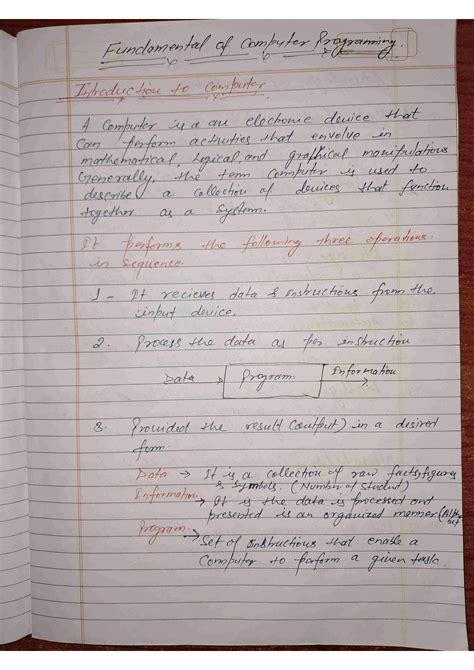 Fundamental of Computer Programming.
Introduction to Computer
A Computer is a an electronic device that
Can perform activities that envolve in
mathematical, Logical, and graphical manipulations
Generally, the term Computer is used to
describe a collection of devices that function
together as a System.
It performs the following three operations
in sequence.
1- It recieves data & instructions from the
input device.
2. Process the data as per instruction
Data → Program Information →
3. Provided the result (output) in a desired
form
Data → It is a collection of raw facts, figures
& symbols. (Number of student)
Information → It is the data is processed and
presented is an organized manner
Program → Set of instructions that enable a
Computer to perform a given task.